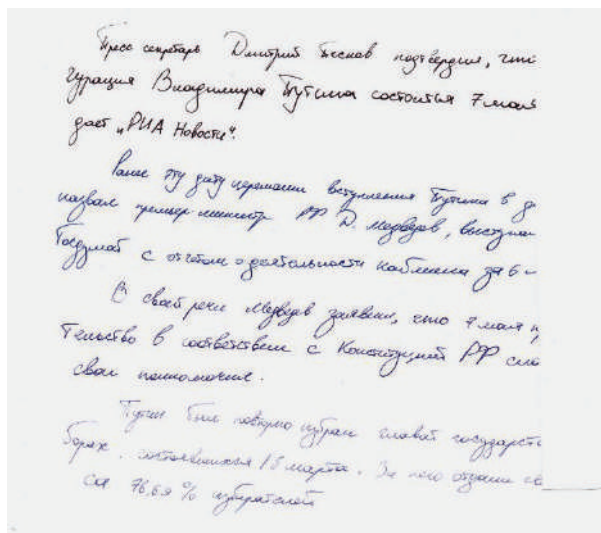 Пресс секретарь Дмитрий Песков подтвердил, что
гурация Владимира Путина состоится 7 мая
дает "РИА Новости".
Ранее эту дату церемонии вступления Путина в д
назвал премьер-министр РФ Д. Медведев, выступа
Госдумой с отчетом о деятельности кабмина за 6
В своей речи Медведев заявил, что 7 мая п
тельство в соответствии с Конституцией РФ сло
свои полномочия.
Путин был повторно избран главой государст
борах, состоявшихся 18 марта. За него отдали го
са 76,69 % избирателей